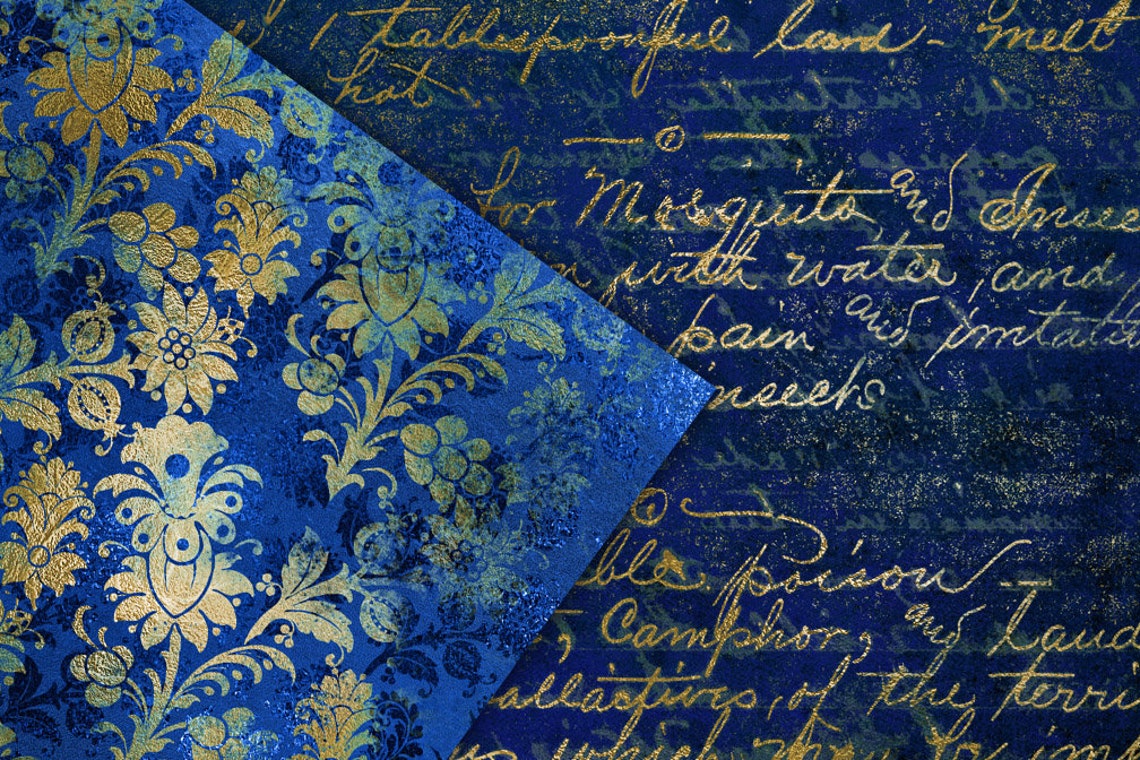 1 tablespoonful lard - melt
hat.
for Mosquito and Insec
with water, and
pain and irritati
insects
ble poison
, Camphor, and Laud
allactives, of the terri
which may by imp